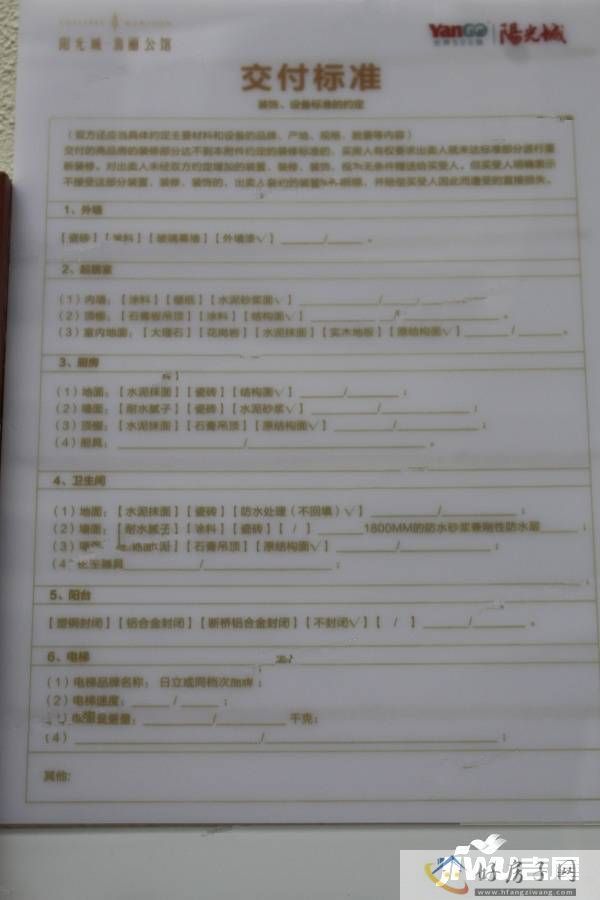 阳光城 翡丽公馆
YanGO 陽光城
交付标准
装饰、设备标准的约定
(双方还应当具体约定主要材料和设备的品牌、产地、规格、数量等内容)
交付的商品房的装修部分达不到本附件约定的装修标准的，买受人有权要求出卖人就未达标准部分进行重
新装修。对出卖人未经双方约定增加的装置、装修、装饰，视为无条件赠送给买受人。但买受人明确表示
不接受这部分装置、装修、装饰的，出卖人
并赔偿买受人因此而遭受的直接损失。
1、外墙
【瓷砖】【涂料】【玻璃幕墙】【外墙漆√】______/______。
2、起居室
(1)内墙：【涂料】【壁纸】【水泥砂浆面√】______/______/______；
(2)顶棚：【石膏板吊顶】【涂料】【结构面√】______/______。
(3)室内地面：【大理石】【花岗岩】【水泥抹面】【实木地板】【原结构面√】______/______。
3、厨房
(1)地面：【水泥抹面】【瓷砖】【结构面√】______/______；
(2)墙面：【耐水腻子】【瓷砖】【水泥砂浆√】______/______；
(3)顶棚：【水泥抹面】【石膏吊顶】【原结构面√】______/______；
(4)厨具：______/______。
4、卫生间
(1)地面：【水泥抹面】【瓷砖】【防水处理(不回填)√】______/______；
(2)墙面：【耐水腻子】【涂料】【瓷砖】【 / 】______1800MM的防水砂浆兼刚性防水层______；
(3)【石膏吊顶】【原结构面√】______/______；
(4)______/______；
5、阳台
【塑钢封闭】【铝合金封闭】【断桥铝合金封闭】【不封闭√】【 / 】______/______。
6、电梯
(1)电梯品牌名称：日立或同档次品牌；
(2)电梯速度：______/______；
______/______千克；
(4)______/______；
其他:
好房子网
www.hfangziwang.com